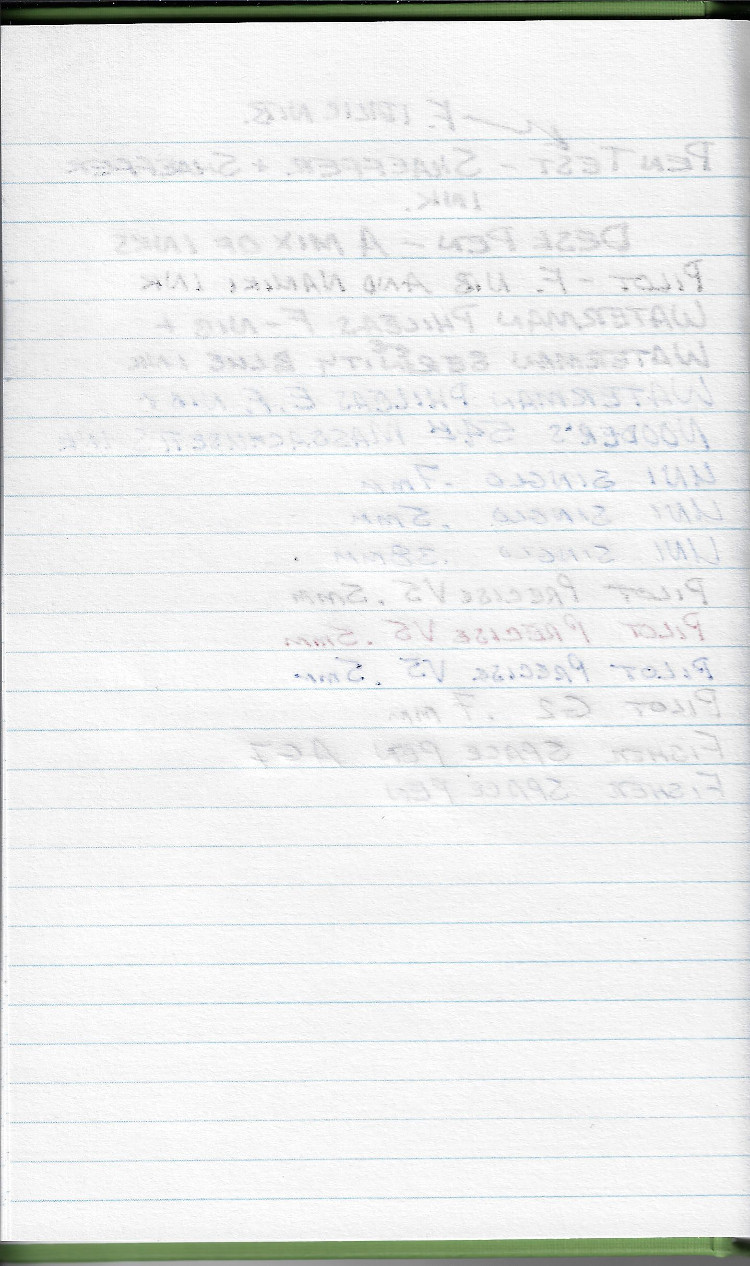 F. ITALIC NIB.
PEN TEST - SHAEFFER. + SHAEFFER
INK.
DESK PEN - A MIX OF INKS
PILOT - F. NIB AND NAMIKI INK
WATERMAN PHILEAS F-NIB +
WATERMAN SERENITY BLUE INK
WATERMAN PHILEAS E.F. NIB
NOODER'S 54TH MASSACHUSETTS INK
UNI SIGNO .7mm
UNI SIGNO .5mm
UNI SIGNO .38mm
PILOT PRECISE V5 .5mm
PILOT PRECISE V5 .5mm
PILOT PRECISE V5 .5mm
PILOT G2 .7mm
FISHER SPACE PEN AG7
FISHER SPACE PEN